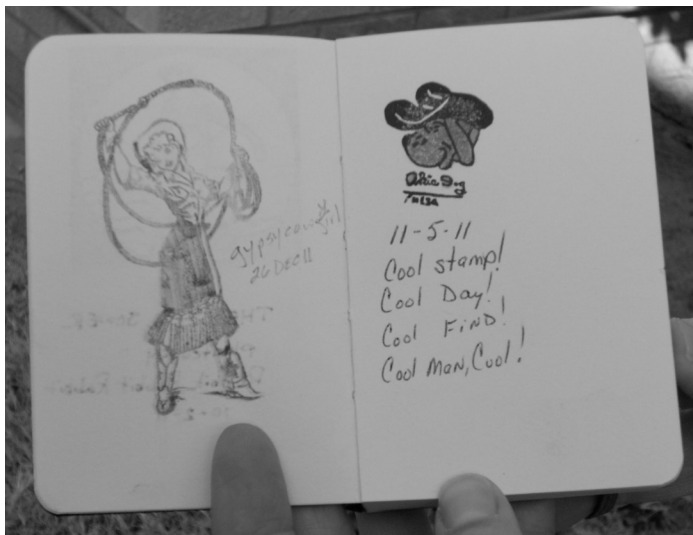 gypsycowgirl
26 Dec 11
Okie Dog
11-5-11
Cool stamp!
Cool Day!
Cool FinD!
Cool Man, Cool!